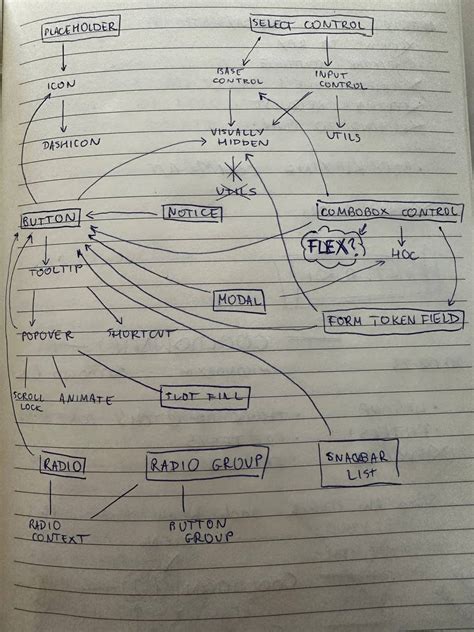 PLACEHOLDER
SELECT CONTROL
ICON
BASE
CONTROL
INPUT
CONTROL
DASHICON
VISUALLY
HIDDEN
UTILS
UTILS
BUTTON
NOTICE
COMBOBOX CONTROL
FLEX?
HOC
TOOLTIP
MODAL
FORM TOKEN FIELD
POPOVER
SHORTCUT
SCROLL
LOCK
ANIMATE
SLOT FILL
RADIO
RADIO GROUP
SNACKBAR
LIST
RADIO
CONTEXT
BUTTON
GROUP